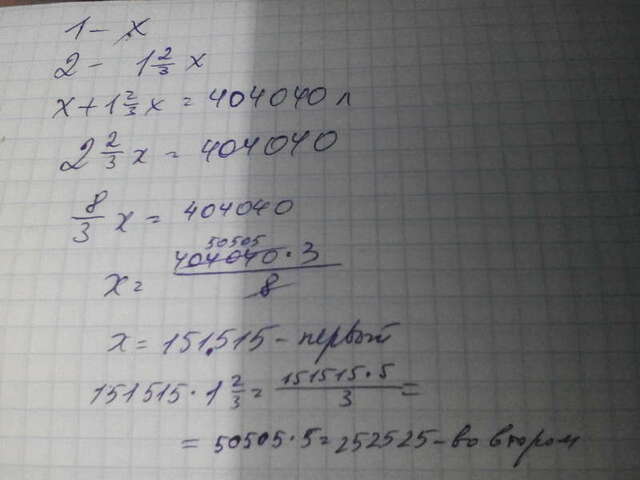 1 - x
2 - 1 2/3 x
x + 1 2/3 x = 404040 л
2 2/3 x = 404040
8/3 x = 404040
50505
x = 404040 · 3 / 8
x = 151515 - первый
151515 · 1 2/3 = 151515 · 5 / 3 =
= 50505 · 5 = 252525 - во втором